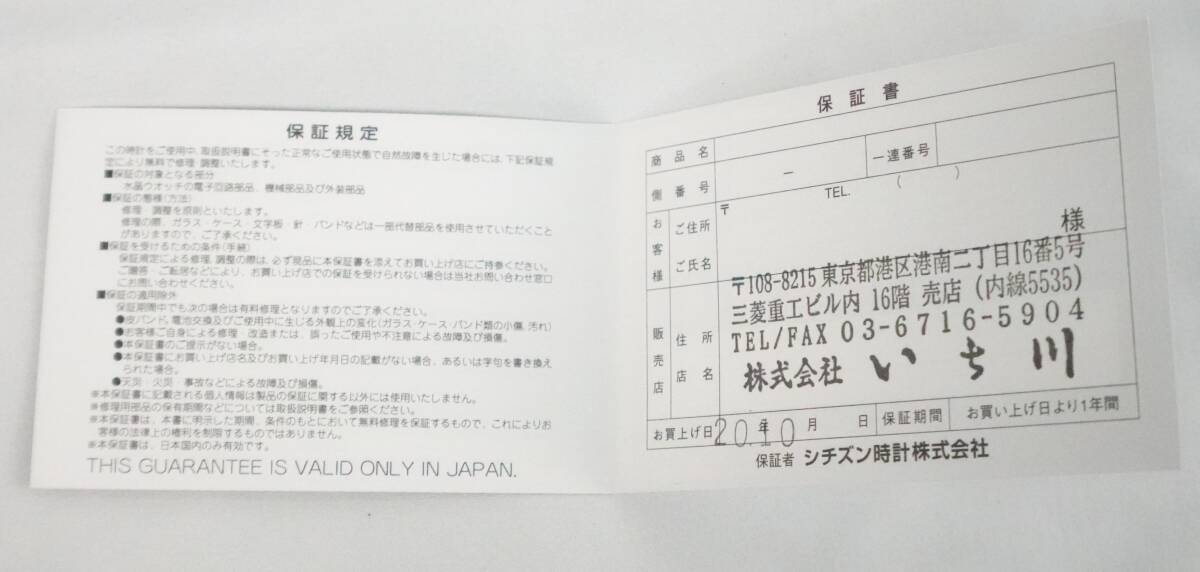 保証規定
この時計をご使用中、取扱説明書にそった正常なご使用状態で自然故障を生じた場合には、下記保証規
定により無料で修理・調整いたします。
■保証の対象となる部分
水晶ウオッチの電子回路部品、機械部品及び外装部品
■保証の態様(方法)
修理・調整を原則といたします。
修理の際、ガラス・ケース・文字板・針・バンドなどは一部代替部品を使用させていただくこと
がありますので、ご了承ください。
■保証を受けるための条件(手続)
保証規定による修理、調整の際は、必ず現品に本保証書を添えてお買い上げ店にご持参ください。
ご贈答・ご転居などにより、お買い上げ店での保証を受けられない場合は当社お問い合わせ窓口
にお問い合わせください。
■保証の適用除外
保証期間中でも次の場合は有料修理となりますのでご了承ください。
●皮バンド、電池交換及びご使用中に生じる外観上の変化(ガラス・ケース・バンド類の小傷、汚れ)
●お客様ご自身による修理・改造または、誤ったご使用や不注意による故障及び損傷。
●本保証書のご提示がない場合。
●本保証書にお買い上げ店名及びお買い上げ年月日の記載がない場合、あるいは字句を書き換え
られた場合。
●天災・火災・事故などによる故障及び損傷。
※本保証書に記載される個人情報は製品の保証に関する以外には使用いたしません。
※修理用部品の保有期間などについては取扱説明書をご参照ください。
※本保証書は、本書に明示した期間、条件のもとにおいて無料修理を保証するもので、これによりお
客様の法律上の権利を制限するものではありません。
※本保証書は、日本国内のみ有効です。
THIS GUARANTEE IS VALID ONLY IN JAPAN.
保証書
商品名
側番号 ー 一連番号
お客様 ご住所 〒 TEL. ( )
ご氏名 様
販売店 住所 店名
〒108-8215 東京都港区港南二丁目16番5号
三菱重工ビル内 16階 売店 (内線5535)
TEL/FAX 03-6716-5904
株式会社 いち川
お買上げ日 20.10 年 月 日 保証期間 お買い上げ日より1年間
保証者 シチズン時計株式会社